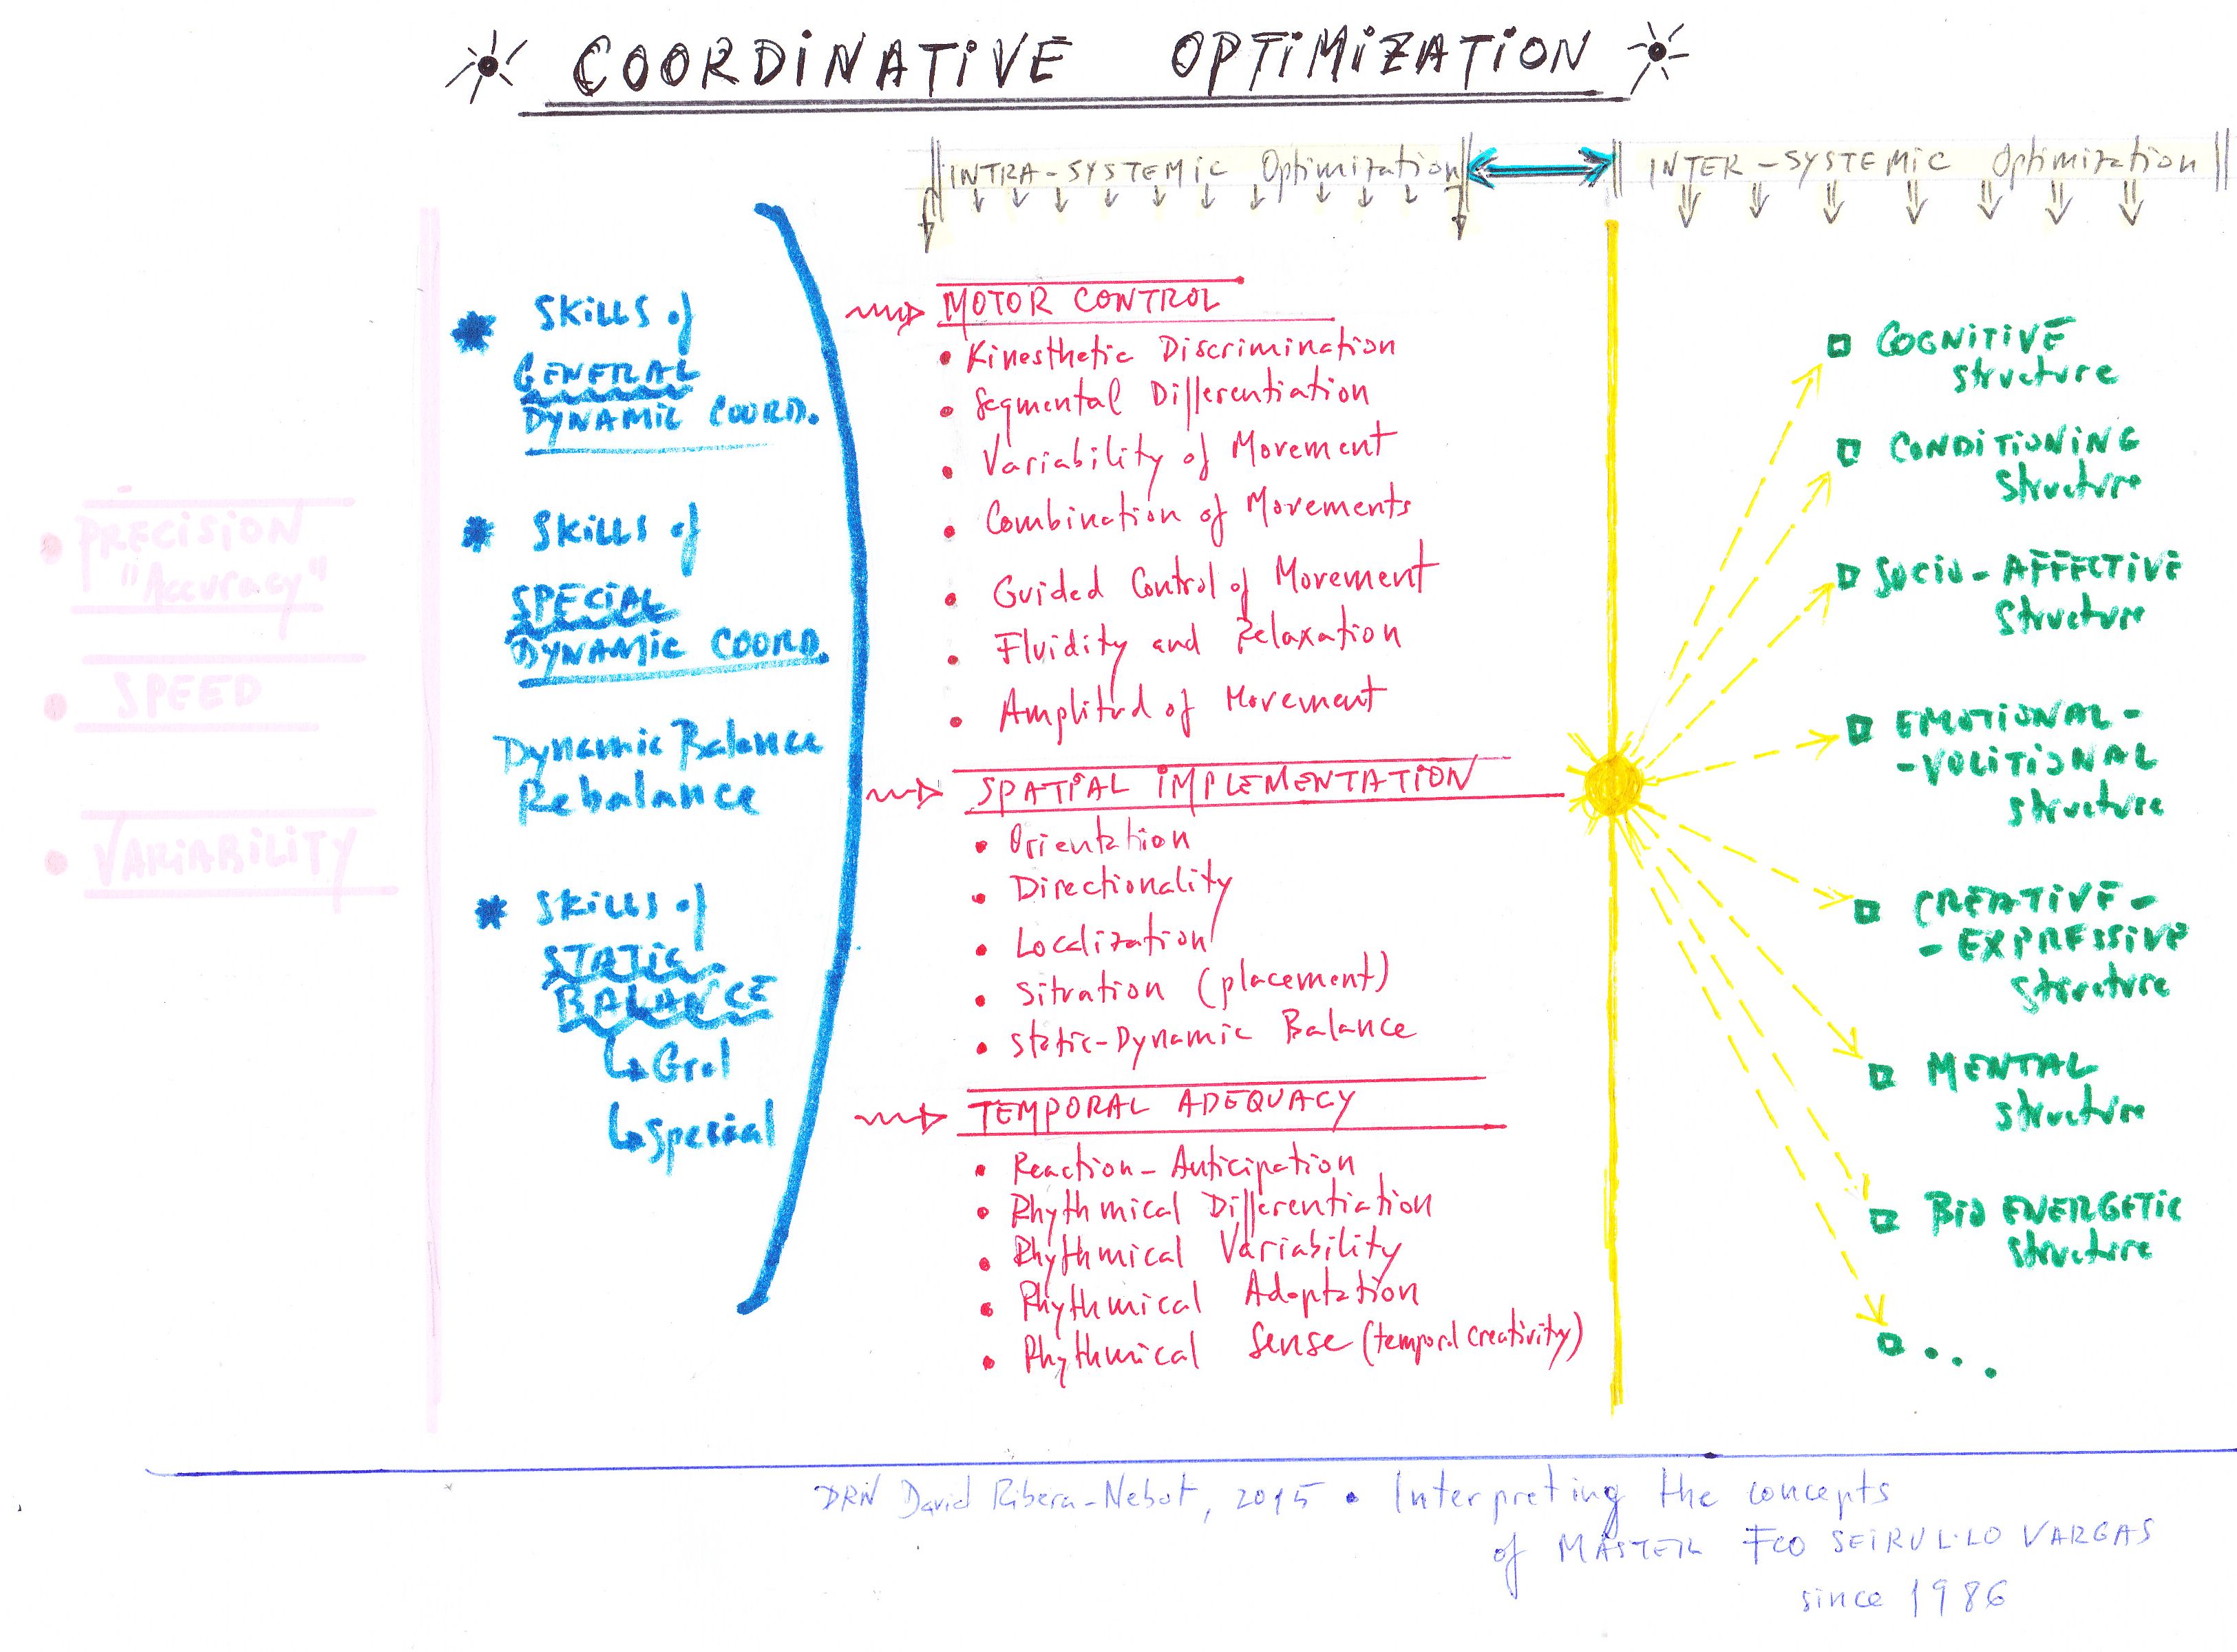 COORDINATIVE OPTIMIZATION
INTRA-SYSTEMIC Optimization
INTER-SYSTEMIC Optimization
PRECISION
"Accuracy"
SPEED
VARIABILITY
SKILLS of
GENERAL
DYNAMIC COORD.
SKILLS of
SPECIAL
DYNAMIC COORD.
Dynamic Balance
Rebalance
SKILLS of
STATIC
BALANCE
Gral
Special
MOTOR CONTROL
• Kinesthetic Discrimination
• Segmental Differentiation
• Variability of Movement
• Combination of Movements
• Guided Control of Movement
• Fluidity and Relaxation
• Amplitud of Movement
SPATIAL IMPLEMENTATION
• Orientation
• Directionality
• Localization
• Situation (placement)
• Static-Dynamic Balance
TEMPORAL ADEQUACY
• Reaction-Anticipation
• Rhythmical Differentiation
• Rhythmical Variability
• Rhythmical Adaptation
• Rhythmical Sense (temporal creativity)
COGNITIVE
structure
CONDITIONING
structure
SOCIO-AFFECTIVE
structure
EMOTIONAL-
-VOLITIONAL
structure
CREATIVE-
-EXPRESSIVE
structure
MENTAL
structure
BIO ENERGETIC
structure
...
DRN David Ribera-Nebot, 2015 • Interpreting the concepts
of MASTER Fco SEIRUL·LO VARGAS
since 1986